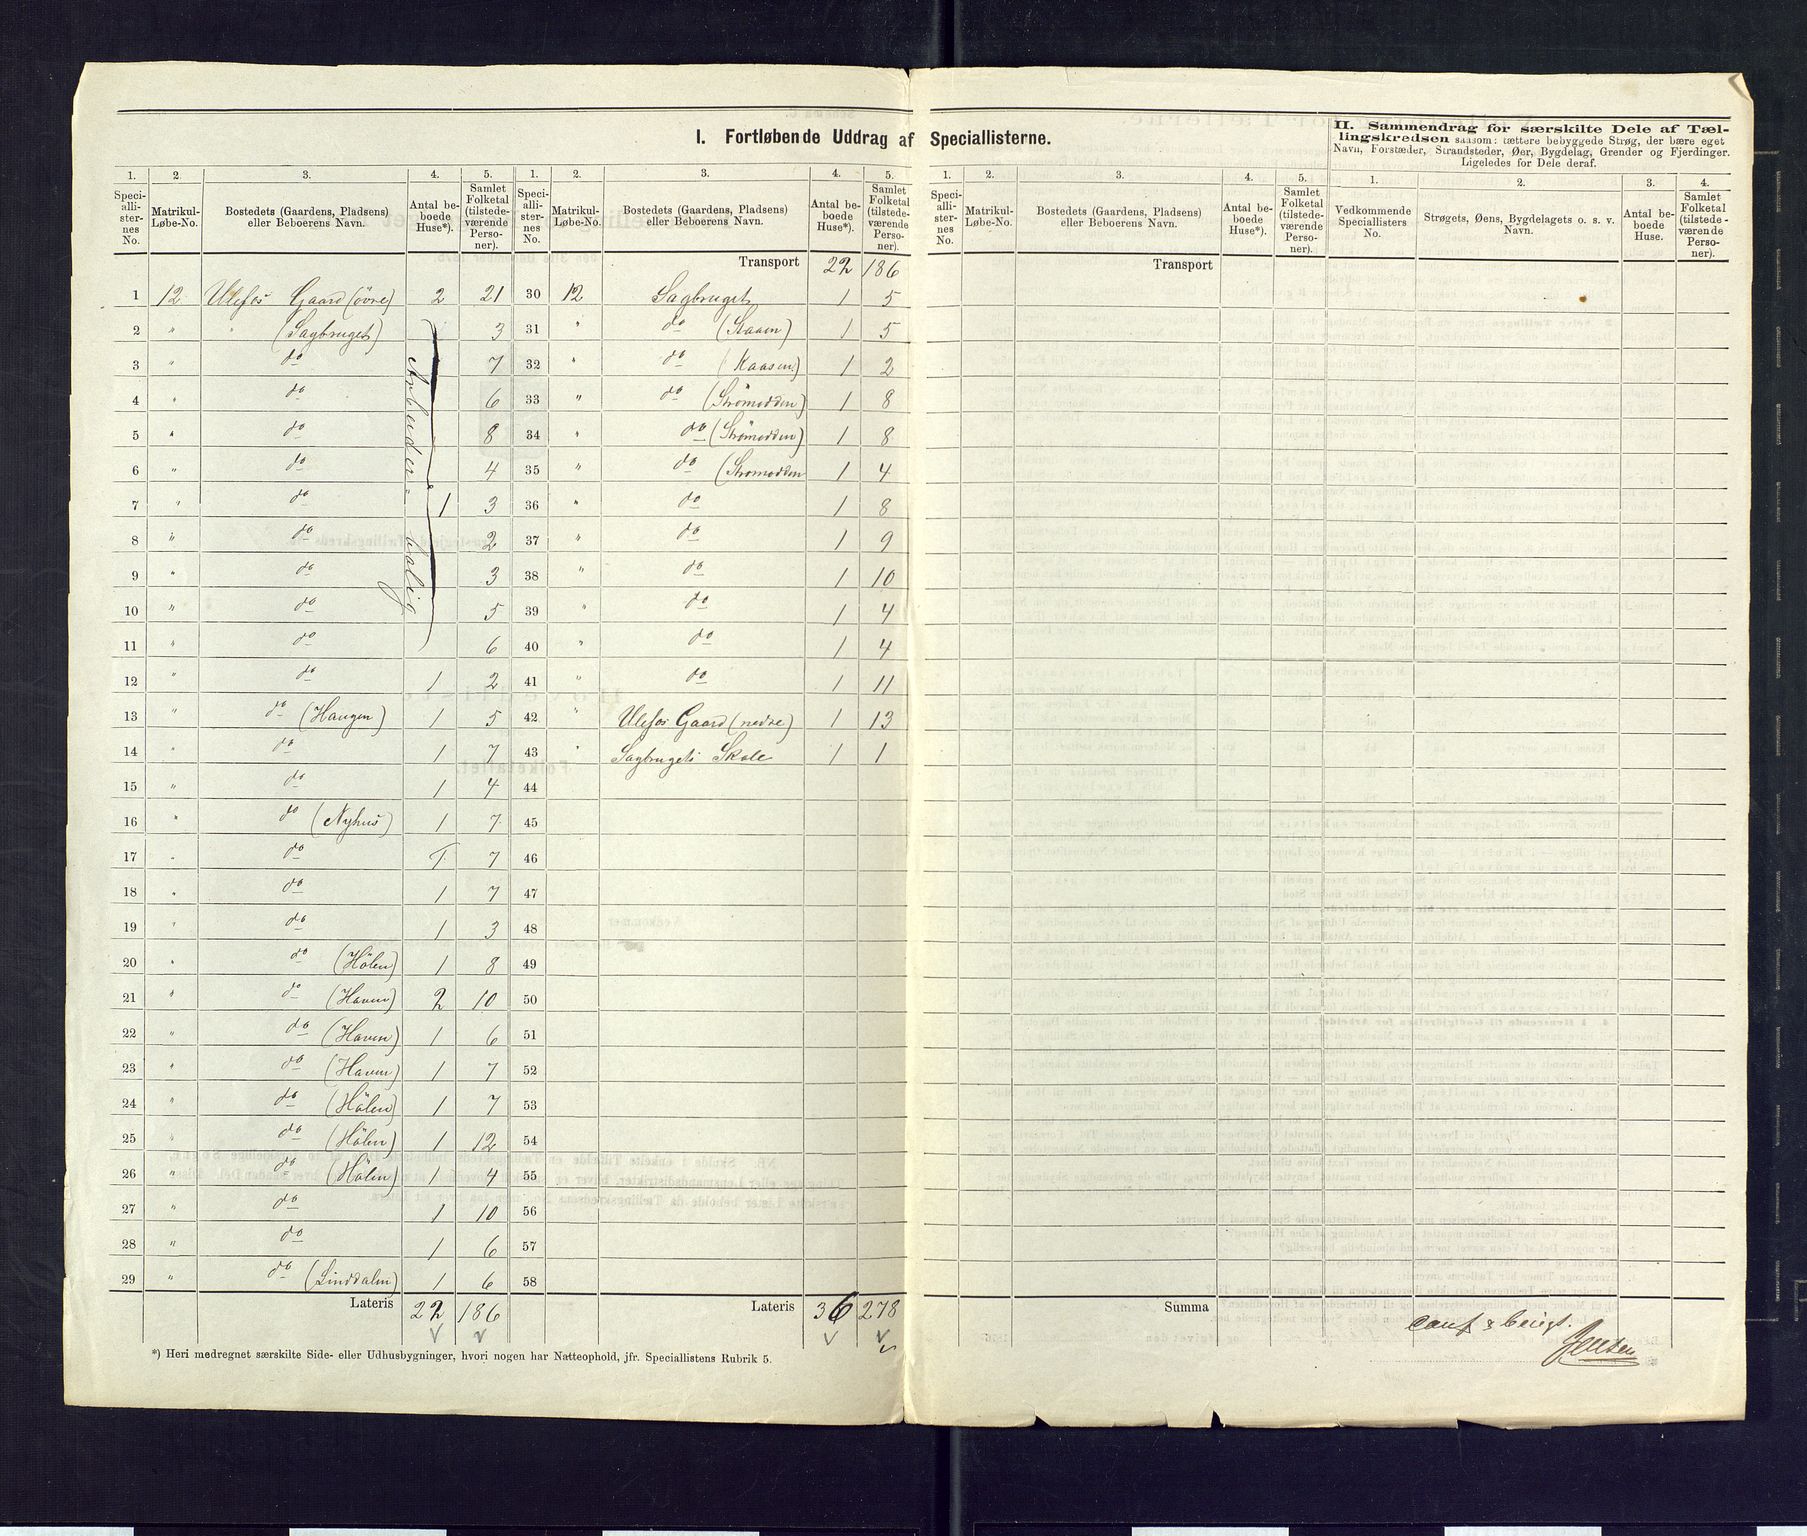 I. Fortløbende Uddrag af Speciallisterne.
II. Sammendrag for særskilte Dele af Tællingskredsen saasom: tættere bebyggede Strøg, der bære eget Navn, Forstæder, Strandsteder, Øer, Bygdelag, Grender og Fjerdinger. Ligeledes for Dele deraf.
1. 2. 3. 4. 5. 1. 2. 3. 4. 5.
Speciallisternes No. Matrikul-Løbe-No. Bostedets (Gaardens, Pladsens) eller Beboerens Navn. Antal beboede Huse*). Samlet Folketal (tilstedeværende Personer).
Speciallisternes No. Matrikul-Løbe-No. Bostedets (Gaardens, Pladsens) eller Beboerens Navn. Antal beboede Huse*). Samlet Folketal (tilstedeværende Personer).
Transport 22 186
1 12 Ulefos Gaard (øvre) 2 21
2 " " (Sagbruget) 3
3 " do 7
4 " do 6
5 " do 8
6 " do 4
7 " do 1 3
8 " do 2
9 " do 3
10 " do 5
11 " do 6
Arbeider-bolig
12 " do 1 2
13 " do (Haugen) 1 5
14 " do 1 7
15 " do 1 4
16 " do (Nyhus) 1 7
17 " do 1 7
18 " do 1 7
19 " do 1 3
20 " do (Hölen) 1 8
21 " do (Haven) 2 10
22 " do (Haven) 1 6
23 " do (Haven) 1 7
24 " do (Hölen) 1 7
25 " do (Hölen) 1 12
26 " do (Hölen) 1 4
27 " do 1 10
28 " do 1 6
29 " do (Linddalen) 1 6
Lateris 22 186
30 12 Sagbruget 1 5
31 " do (Staaen) 1 5
32 " do (Kaasen) 1 2
33 " do (Strömodden) 1 8
34 " do (Strömodden) 1 8
35 " do (Strömodden 1 4
36 " do 1 8
37 " do 1 9
38 " do 1 10
39 " do 1 4
40 " do 1 4
41 " do 1 11
42 " Ulefos Gaard (nedre) 1 13
43 " Sagbrugets Skole 1 1
44
45
46
47
48
49
50
51
52
53
54
55
56
57
58
Lateris 36 278
*) Heri medregnet særskilte Side- eller Udhusbygninger, hvori nogen har Natteophold, jfr. Speciallistens Rubrik 5.
1. 2. 3. 4. 5. 1. 2. 3. 4.
Speciallisternes No. Matrikul-Løbe-No. Bostedets (Gaardens, Pladsens) eller Beboerens Navn. Antal beboede Huse*). Samlet Folketal (tilstedeværende Personer).
Vedkommende Speciallisters No. Strøgets, Øens, Bygdelagets o. s. v. Navn. Antal beboede Huse. Samlet Folketal (tilstedeværende Personer).
Transport
Summa